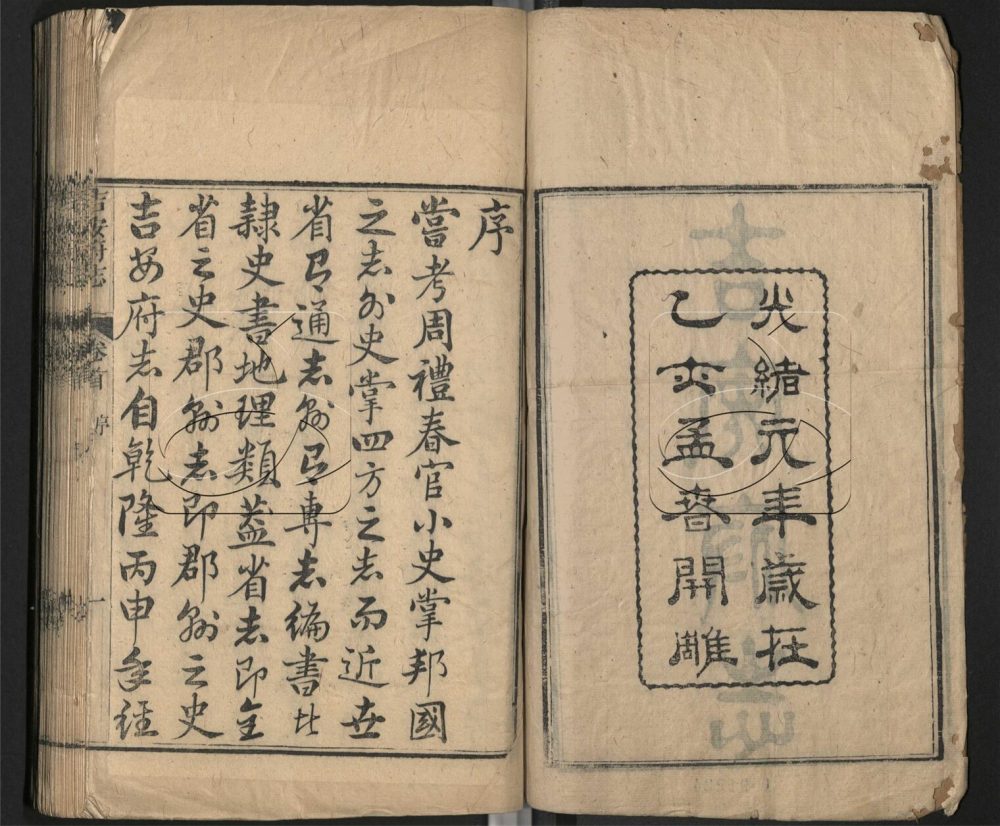 光緒元年歲在
乙亥孟春開雕
序
嘗考周禮春官小史掌邦國
之志外史掌四方之志而近世
省有通志縣有專志編書比
隸史書地理類蓋省志即全
省之史郡縣志即郡縣之史
吉安府志自乾隆丙申年經
吉安府志
卷首
序
一